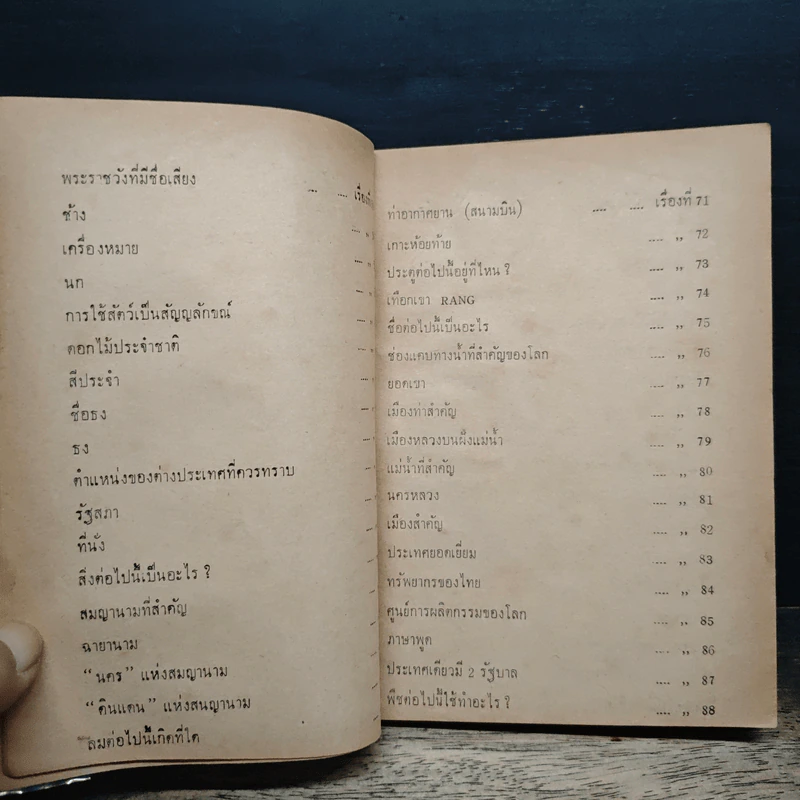 พระราชวังที่มีชื่อเสียง .... .... เรื่องที่
ช้าง .... ,,
เครื่องหมาย
นก
การใช้สัตว์เป็นสัญญลักขณ์
ดอกไม้ประจำชาติ
สีประจำ
ชื่อธง
ธง
ตำแหน่งของต่างประเทศที่ควรทราบ
รัฐสภา
ที่นั่ง
สิ่งต่อไปนี้เป็นอะไร ?
สมญานามที่สำคัญ
ฉายานาม
“นคร” แห่งสมญานาม
“ดินแดน” แห่งสนญานาม
ลมต่อไปนี้เกิดที่ใด
ท่าอากาศยาน (สนามบิน) .... .... เรื่องที่ 71
เกาะห้อยท้าย .... ,, 72
ประตูต่อไปนี้อยู่ที่ไหน ? .... ,, 73
เทือกเขา RANG .... ,, 74
ชื่อต่อไปนี้เป็นอะไร .... ,, 75
ช่องแคบทางน้ำที่สำคัญของโลก .... ,, 76
ยอดเขา .... ,, 77
เมืองท่าสำคัญ .... ,, 78
เมืองหลวงบนฝั่งแม่น้ำ .... ,, 79
แม่น้ำที่สำคัญ .... ,, 80
นครหลวง .... ,, 81
เมืองสำคัญ .... ,, 82
ประเทศยอดเยี่ยม .... ,, 83
ทรัพยากรของไทย .... ,, 84
ศูนย์การผลิตกรรมของโลก .... ,, 85
ภาษาพูด .... ,, 86
ประเทศเดียวมี 2 รัฐบาล .... ,, 87
พืชต่อไปนี้ใช้ทำอะไร ? .... ,, 88